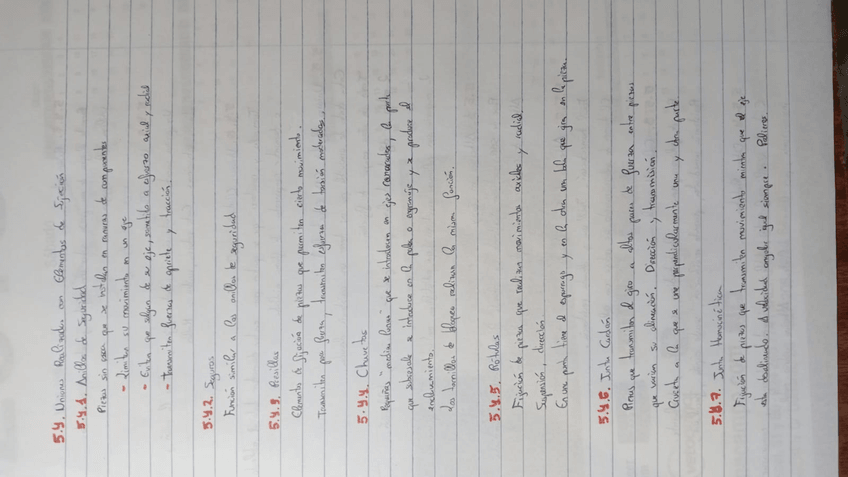 5.4. Uniones Realizadas con Elementos de Sujeción
5.4.1. Anillos de Seguridad
Piezas sin rosca que se instalan en ranuras de componentes
- Limitan su movimiento en un eje
- Evitan que salgan de su eje, sometido a esfuerzo axial y radial
- Transmiten fuerzas de apriete y tracción.
5.4.2. Seguros
Función similar a los anillos de seguridad
5.4.3. Rejillas
Elemento de fijación de piezas que permiten cierto movimiento.
Transmiten por forma, transmiten esfuerzos de torsión moderados.
5.4.4. Chavetas
Pequeñas "medias lunas" que se introducen en ejes ranurados, la parte
que sobresale se introduce en la polea o engranaje y se produce el
enclavamiento.
Los tornillos de bloqueo realizan la misma función.
5.4.5. Rótulas
Fijación de pieza que realizan movimientos axiales y radial.
Suspensión, dirección
En una parte tiene el esparrago y en la otra una bola que gira en la pieza.
5.4.6. Junta Cardán
Piezas que transmiten el giro a altos pares de fuerza entre piezas
que varían su alineación. Dirección y transmisión.
Cruceta a la que se une perpendicularmente una y otra parte
5.4.7. Junta Homocinética
Fijación de piezas que transmiten movimiento mientras que el eje
esta desalineado. A velocidad angular igual siempre. Palieres.